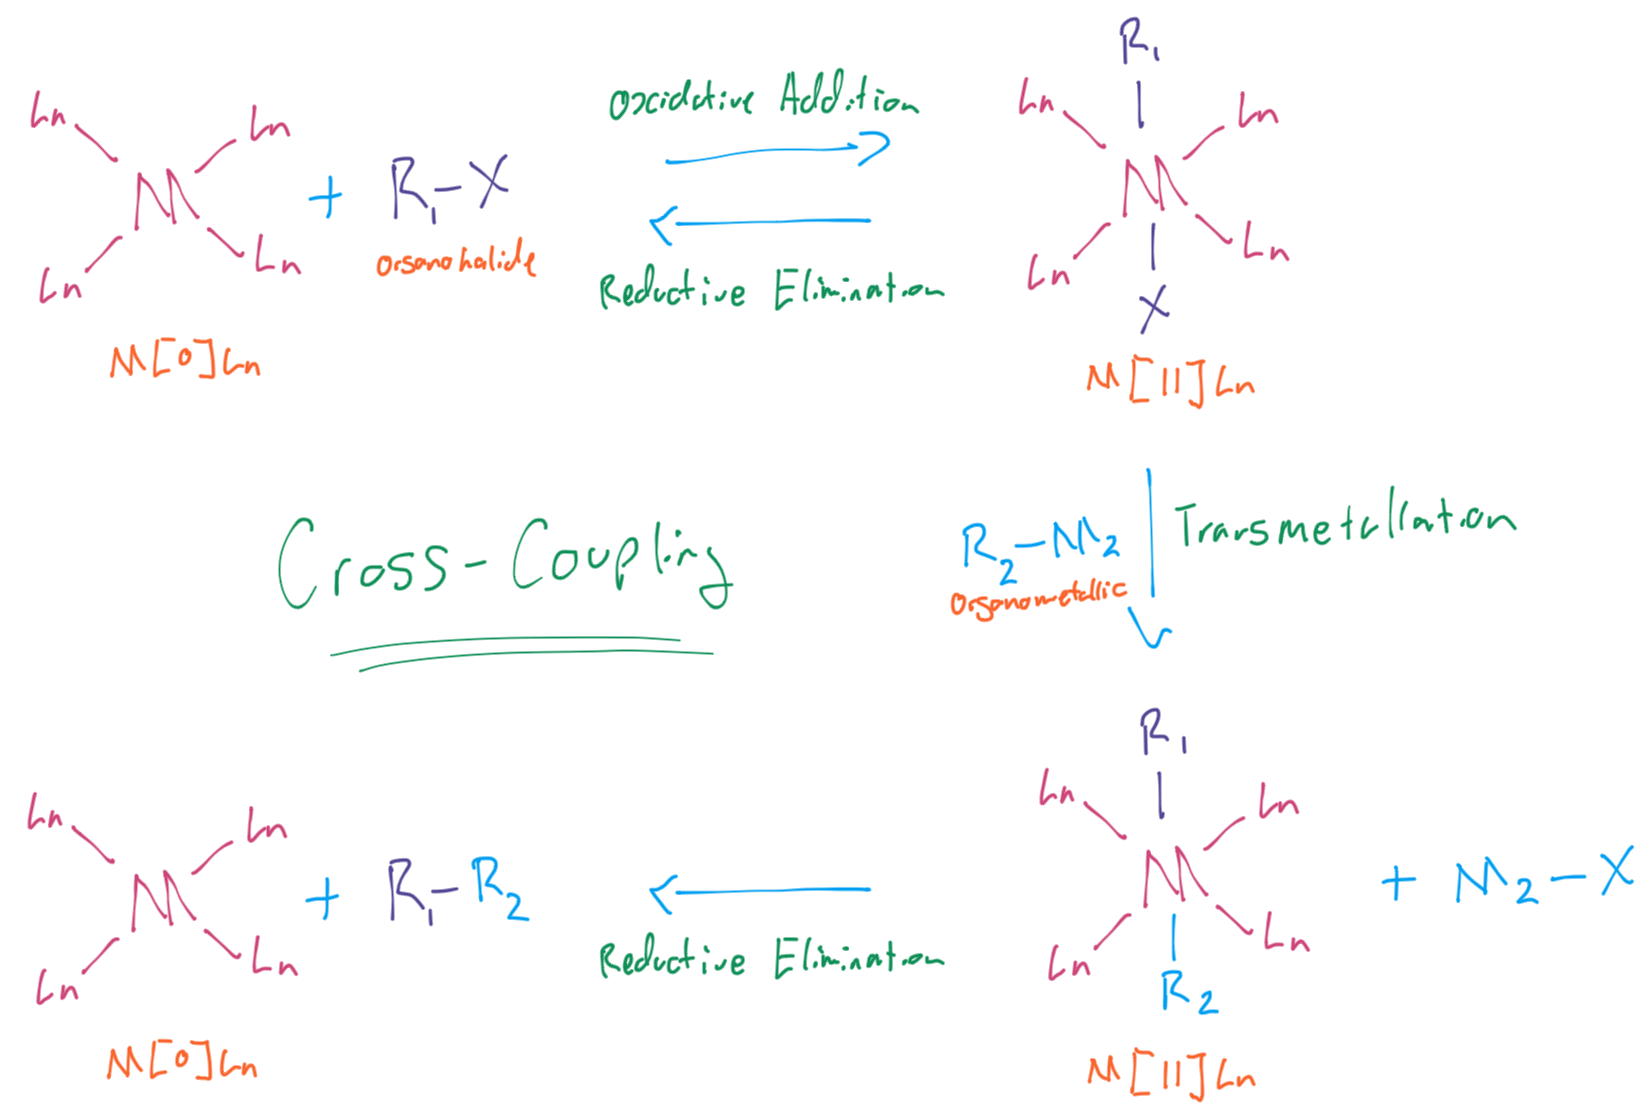 Ln Ln
M
Ln Ln
M[0]Ln
+ R₁-X
Organohalide
Oxidative Addition
Reductive Elimination
R₁
Ln Ln
M
Ln Ln
X
M[II]Ln
Cross-Coupling
R₂-M₂
Organometallic
Transmetallation
Ln Ln
M
Ln Ln
M[0]Ln
+ R₁-R₂
Reductive Elimination
R₁
Ln Ln
M
Ln Ln
R₂
M[II]Ln
+ M₂-X